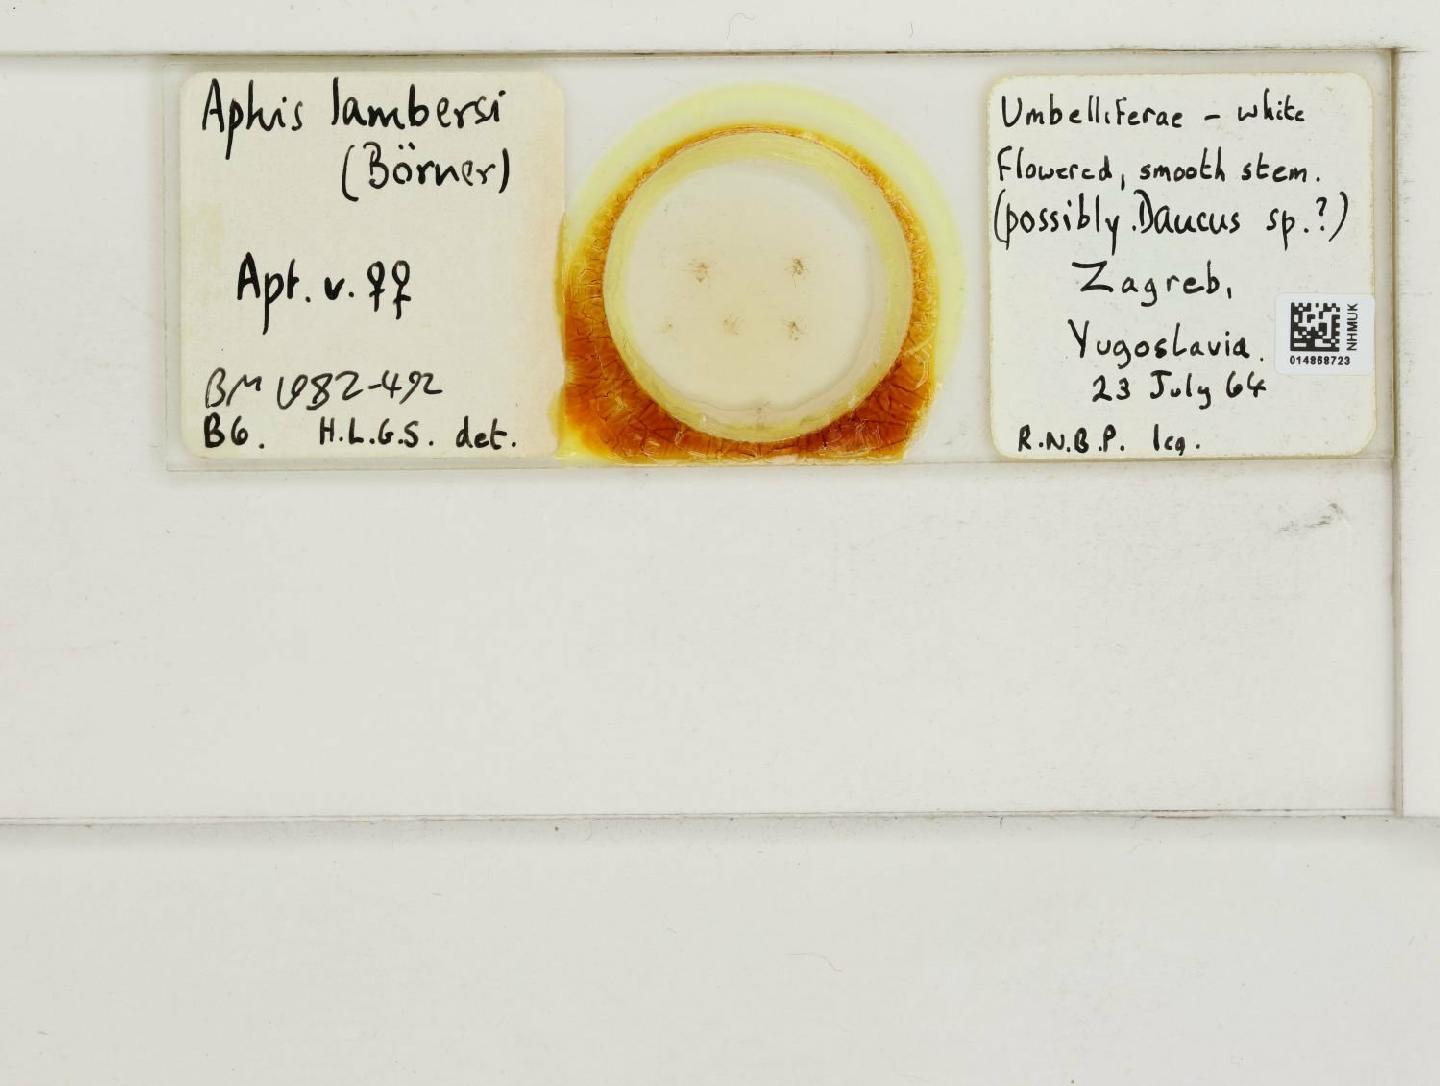 Aphis lambersi
(Börner)
Apt. v. ♀♀
BM 1982-492
B6. H.L.G.S. det.
Umbelliferae - white
flowered, smooth stem.
(possibly Daucus sp.?)
Zagreb,
Yugoslavia.
23 July 64
R.N.B.P. leg.
NHMUK
014868723